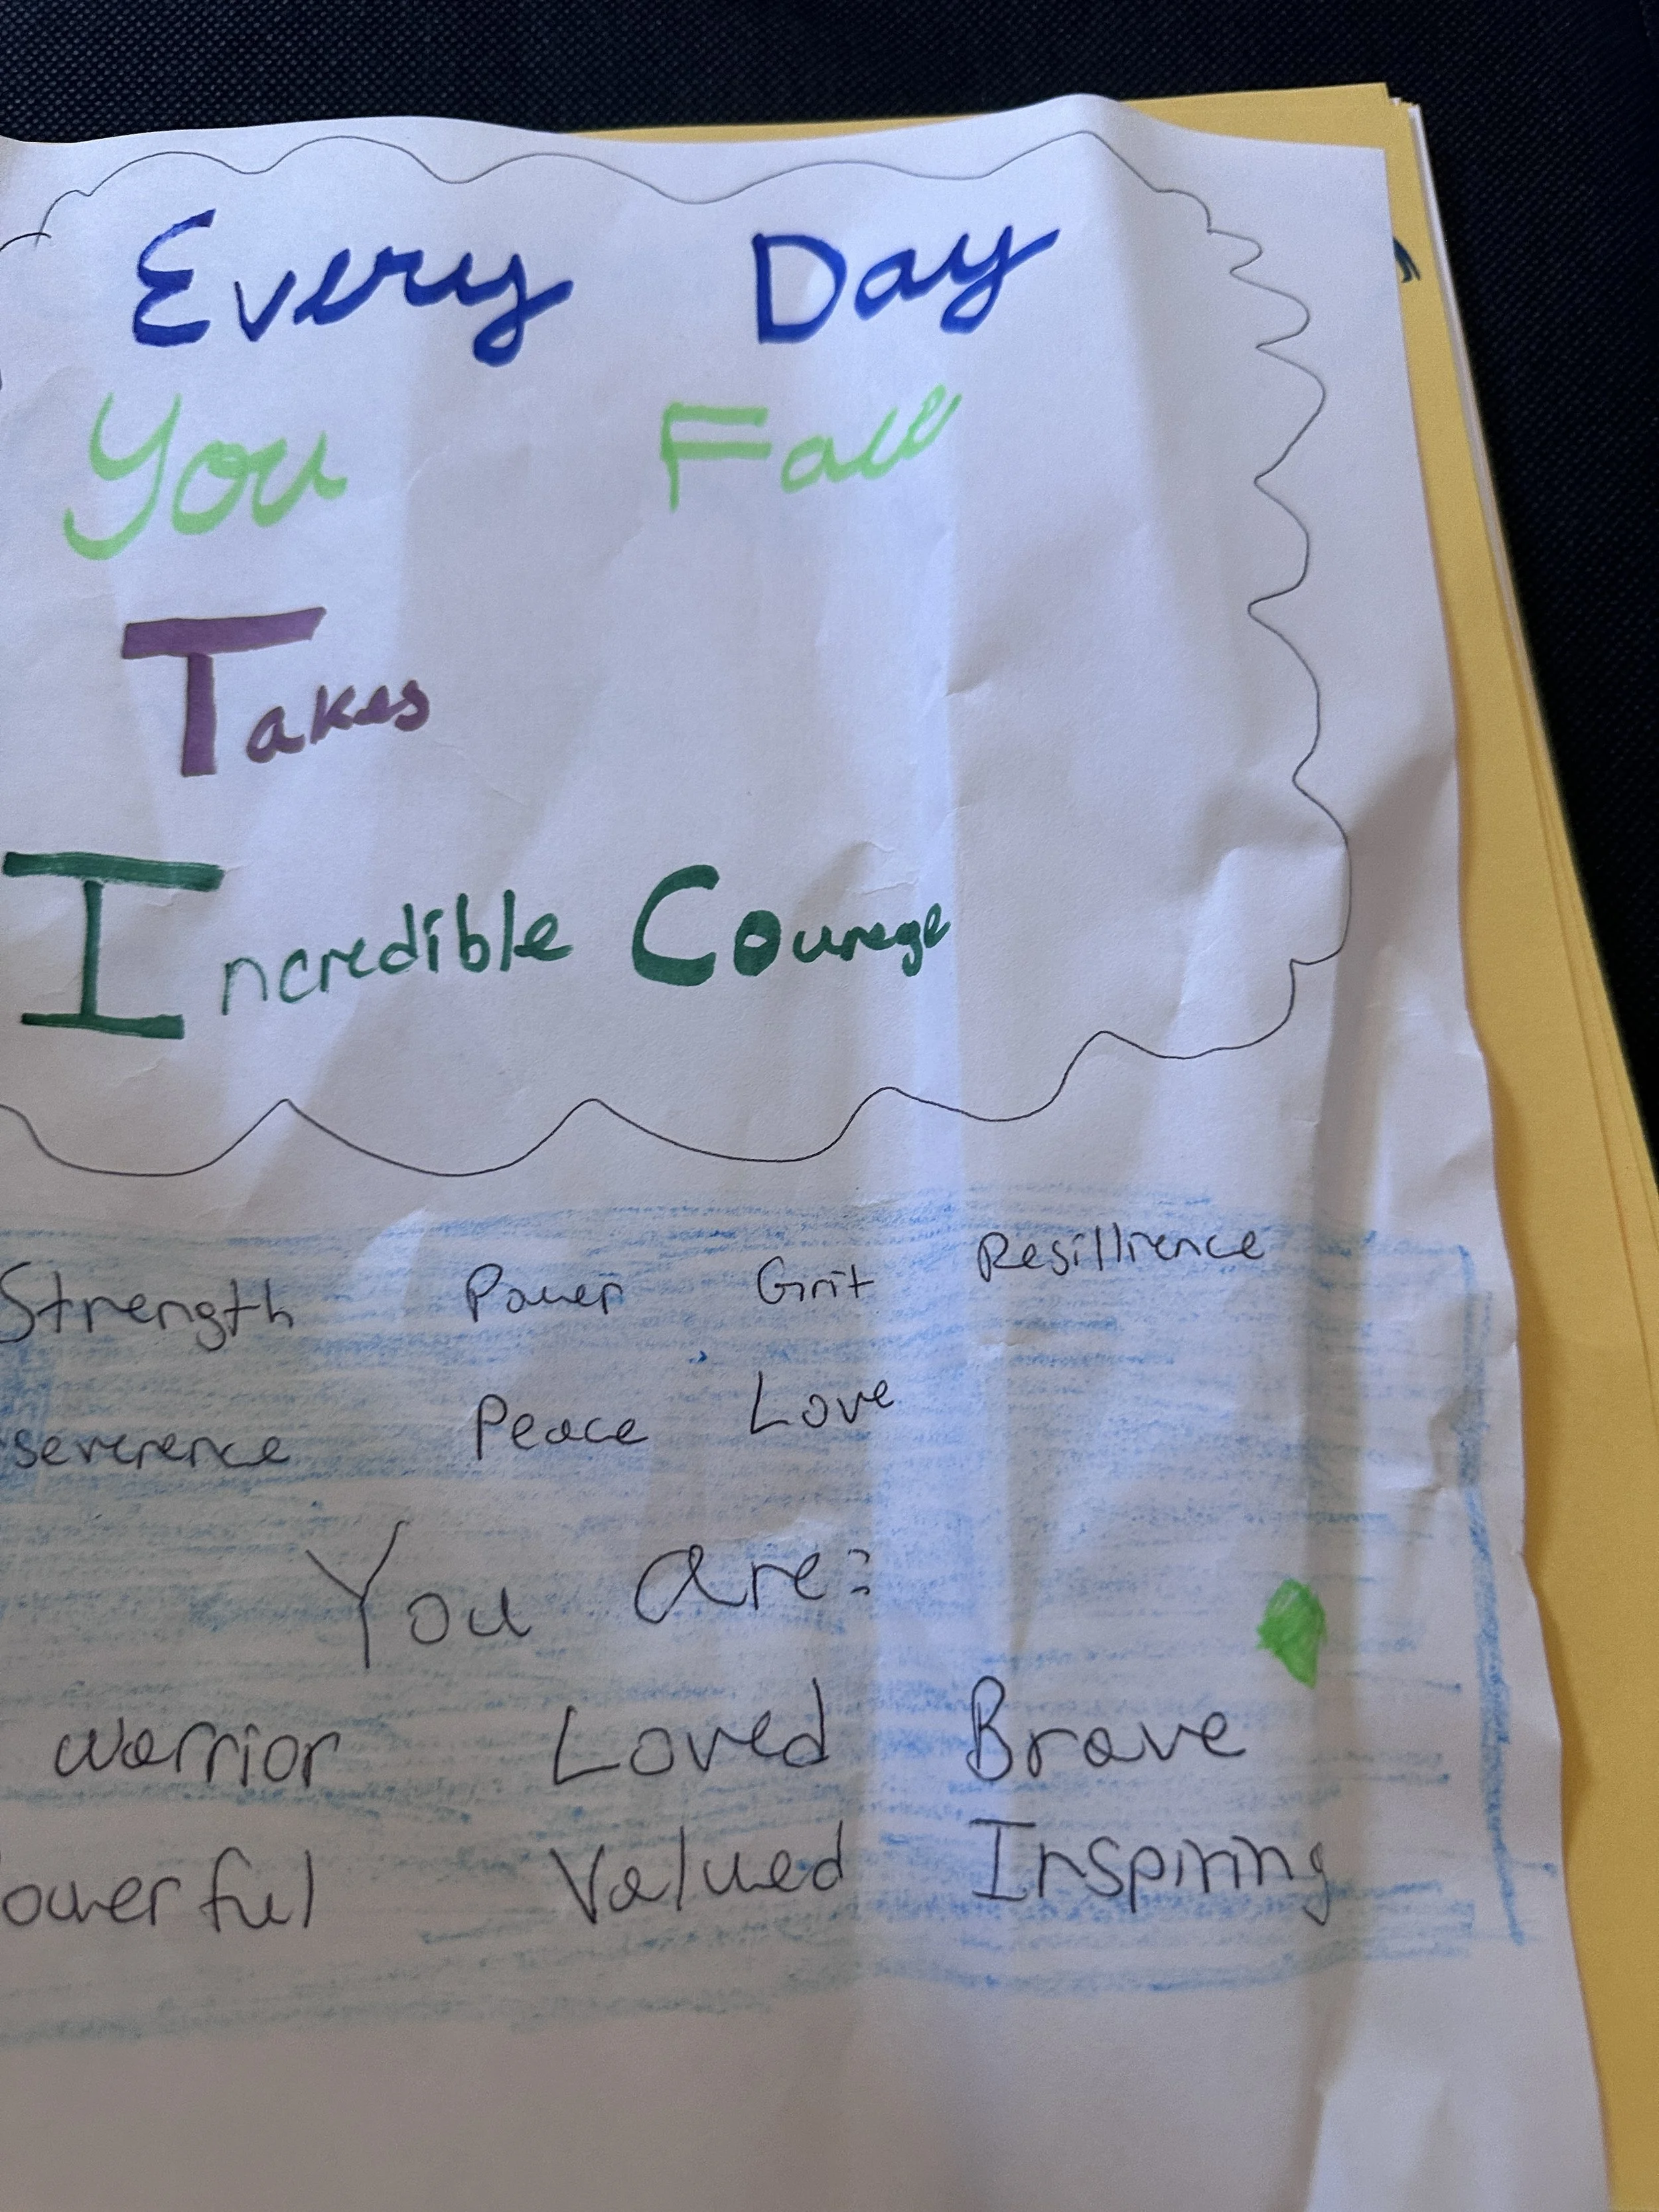 Every Day
You Fall
Takes
Incredible Courage
Strength Power Grit Resillience
severence Peace Love
You are:
warrior Loved Brave
owerful Valued Inspiring